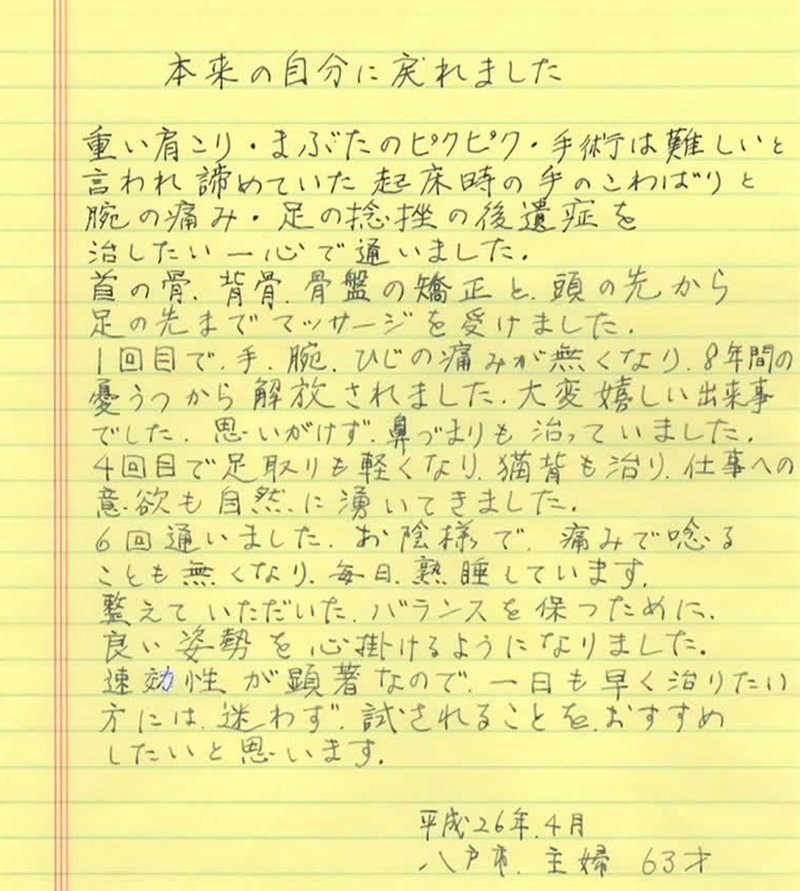 本来の自分に戻れました
重い肩こり・まぶたのピクピク・手術は難しいと
言われ諦めていた起床時の手のこわばりと
腕の痛み・足の捻挫の後遺症を
治したい一心で通いました。
首の骨、背骨、骨盤の矯正と、頭の先から
足の先までマッサージを受けました。
1回目で、手、腕、ひじの痛みが無くなり、8年間の
憂うつから解放されました。大変嬉しい出来事
でした。思いがけず、鼻づまりも治っていました。
4回目で足取りも軽くなり、猫背も治り、仕事への
意欲も自然に湧いてきました。
6回通いました。お陰様で、痛みで唸る
ことも無くなり、毎日、熟睡しています。
整えていただいた、バランスを保つために、
良い姿勢を心掛けるようになりました。
速効性が顕著なので、一日も早く治りたい
方には、迷わず、試されることを、おすすめ
したいと思います。
平成26年、4月
八戸市、主婦 63才